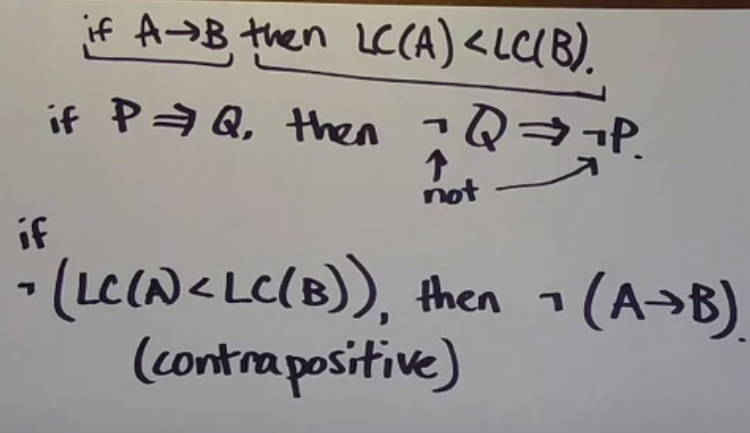 if A→B then LC(A)<LC(B).
if P⇒Q, then ¬Q⇒¬P.
not
if
¬(LC(A)<LC(B)), then ¬(A→B).
(contrapositive)